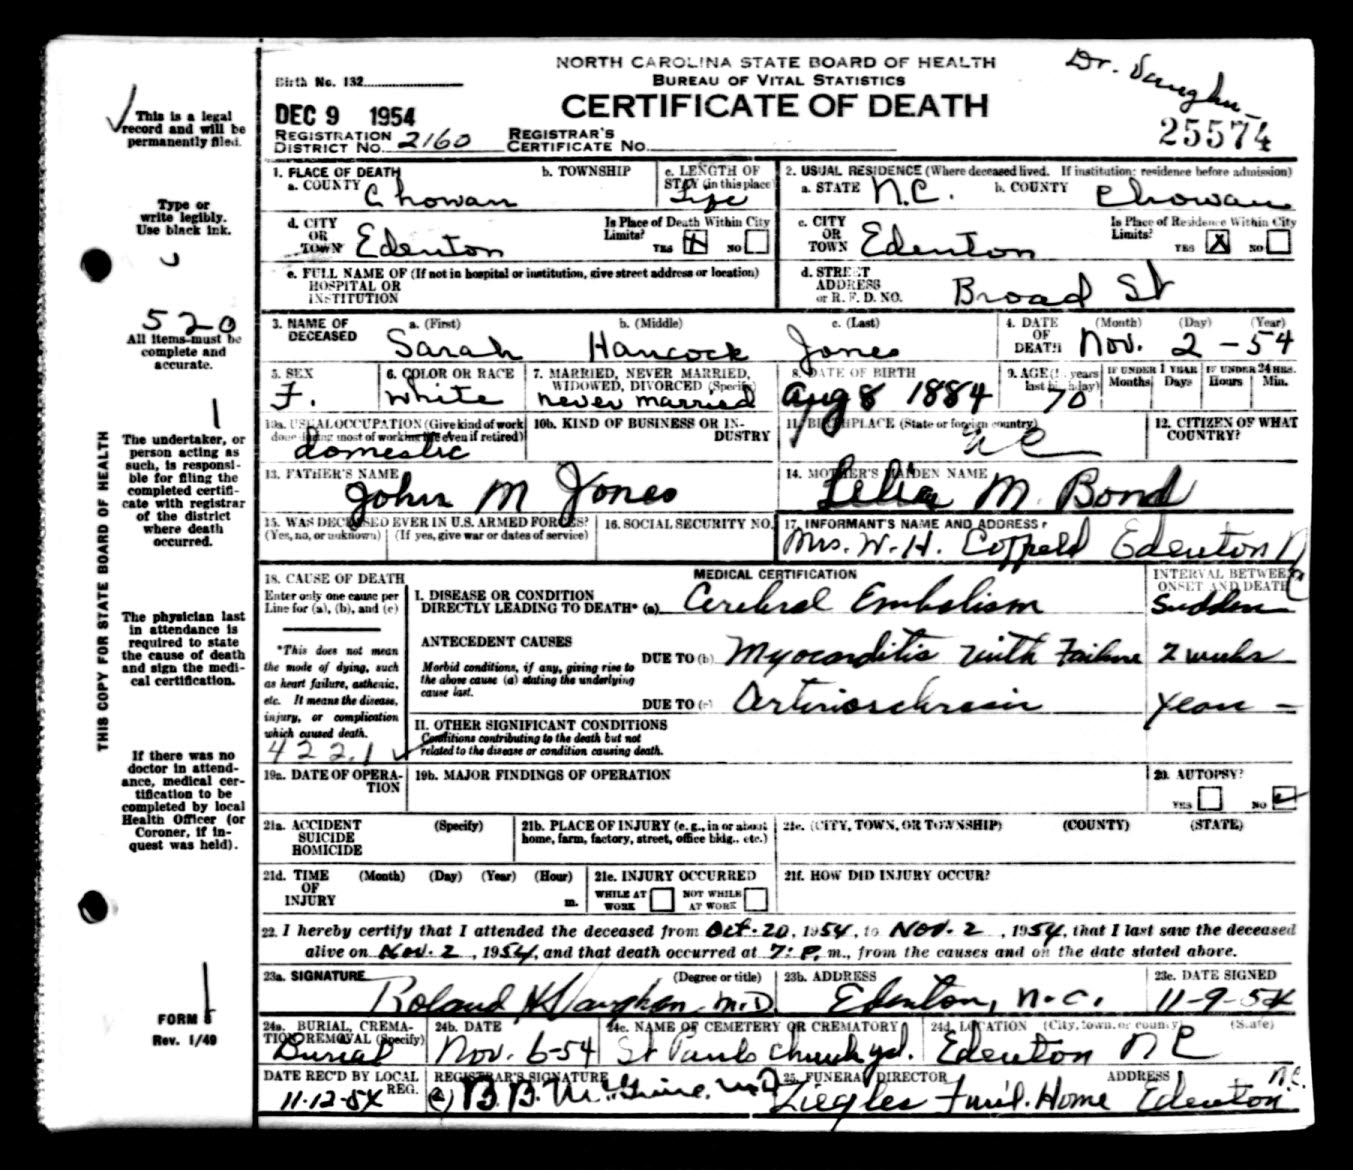 NORTH CAROLINA STATE BOARD OF HEALTH
BUREAU OF VITAL STATISTICS
CERTIFICATE OF DEATH
Dr. Vaughn
25574
Birth No. 132
DEC 9 1954
REGISTRATION DISTRICT NO. 2160 REGISTRAR'S CERTIFICATE NO.
This is a legal
record and will be
permanently filed.
Type or
write legibly.
Use black ink.
520
All items must be
complete and
accurate.
1
The undertaker, or
person acting as
such, is responsi-
ble for filing the
completed certifi-
cate with registrar
of the district
where death
occurred.
The physician last
in attendance is
required to state
the cause of death
and sign the medi-
cal certification.
If there was no
doctor in attend-
ance, medical cer-
tification to be
completed by local
Health Officer (or
Coroner, if in-
quest was held).
FORM 8
Rev. 1/49
THIS COPY FOR STATE BOARD OF HEALTH
1. PLACE OF DEATH
a. COUNTY Chowan
b. TOWNSHIP
c. LENGTH OF STAY (in this place) Life
2. USUAL RESIDENCE (Where deceased lived. If institution: residence before admission)
a. STATE N.C. b. COUNTY Chowan
d. CITY OR TOWN Edenton
Is Place of Death Within City Limits? YES X NO
c. CITY OR TOWN Edenton
Is Place of Residence Within City Limits? YES X NO
e. FULL NAME OF (If not in hospital or institution, give street address or location)
HOSPITAL OR
INSTITUTION
d. STREET ADDRESS or R. F. D. NO. Broad St
3. NAME OF DECEASED a. (First) b. (Middle) c. (Last)
Sarah Hancock Jones
4. DATE OF DEATH (Month) (Day) (Year)
Nov. 2 - 54
5. SEX F.
6. COLOR OR RACE White
7. MARRIED, NEVER MARRIED, WIDOWED, DIVORCED (Specify) never married
8. DATE OF BIRTH Aug 8 1884
9. AGE (In years last birthday) 70
IF UNDER 1 YEAR Months Days
IF UNDER 24 HRS. Hours Min.
10a. USUAL OCCUPATION (Give kind of work done during most of working life even if retired) domestic
10b. KIND OF BUSINESS OR INDUSTRY
11. BIRTHPLACE (State or foreign country) NC
12. CITIZEN OF WHAT COUNTRY?
13. FATHER'S NAME John M Jones
14. MOTHER'S MAIDEN NAME Lelia M. Bond
15. WAS DECEASED EVER IN U.S. ARMED FORCES?
(Yes, no, or unknown) (If yes, give war or dates of service)
16. SOCIAL SECURITY NO.
17. INFORMANT'S NAME AND ADDRESS
Mrs. W. H. Coffield Edenton NC
18. CAUSE OF DEATH
Enter only one cause per
Line for (a), (b), and (c)
*This does not mean
the mode of dying, such
as heart failure, asthenic,
etc. It means the disease,
injury, or complication
which caused death.
422.1
MEDICAL CERTIFICATION
INTERVAL BETWEEN ONSET AND DEATH
I. DISEASE OR CONDITION
DIRECTLY LEADING TO DEATH* (a) Cerebral Embolism Sudden
ANTECEDENT CAUSES
Morbid conditions, if any, giving rise to
the above cause (a) stating the underlying
cause last.
DUE TO (b) Myocarditis with Failure 2 weeks
DUE TO (c) Arteriosclerosis Years
II. OTHER SIGNIFICANT CONDITIONS
Conditions contributing to the death but not
related to the disease or condition causing death.
19a. DATE OF OPERATION
19b. MAJOR FINDINGS OF OPERATION
20. AUTOPSY?
YES NO
21a. ACCIDENT (Specify)
SUICIDE
HOMICIDE
21b. PLACE OF INJURY (e. g., in or about
home, farm, factory, street, office bldg., etc.)
21c. (CITY, TOWN, OR TOWNSHIP) (COUNTY) (STATE)
21d. TIME OF INJURY (Month) (Day) (Year) (Hour) m.
21e. INJURY OCCURRED
WHILE AT WORK NOT WHILE AT WORK
21f. HOW DID INJURY OCCUR?
22. I hereby certify that I attended the deceased from Oct. 20, 1954, to Nov. 2, 1954, that I last saw the deceased
alive on Nov. 2, 1954, and that death occurred at 7: P. m., from the causes and on the date stated above.
23a. SIGNATURE (Degree or title)
Roland H Vaughan M.D
23b. ADDRESS Edenton, N.C.
23c. DATE SIGNED 11-9-54
24a. BURIAL, CREMATION, REMOVAL (Specify) Burial
24b. DATE Nov. 6-54
24c. NAME OF CEMETERY OR CREMATORY St Pauls Church yd.
24d. LOCATION (City, town, or county) (State) Edenton NC
DATE REC'D BY LOCAL REG. 11-12-54
REGISTRAR'S SIGNATURE
25. FUNERAL DIRECTOR ADDRESS
Ziegler Funl. Home Edenton N.C.